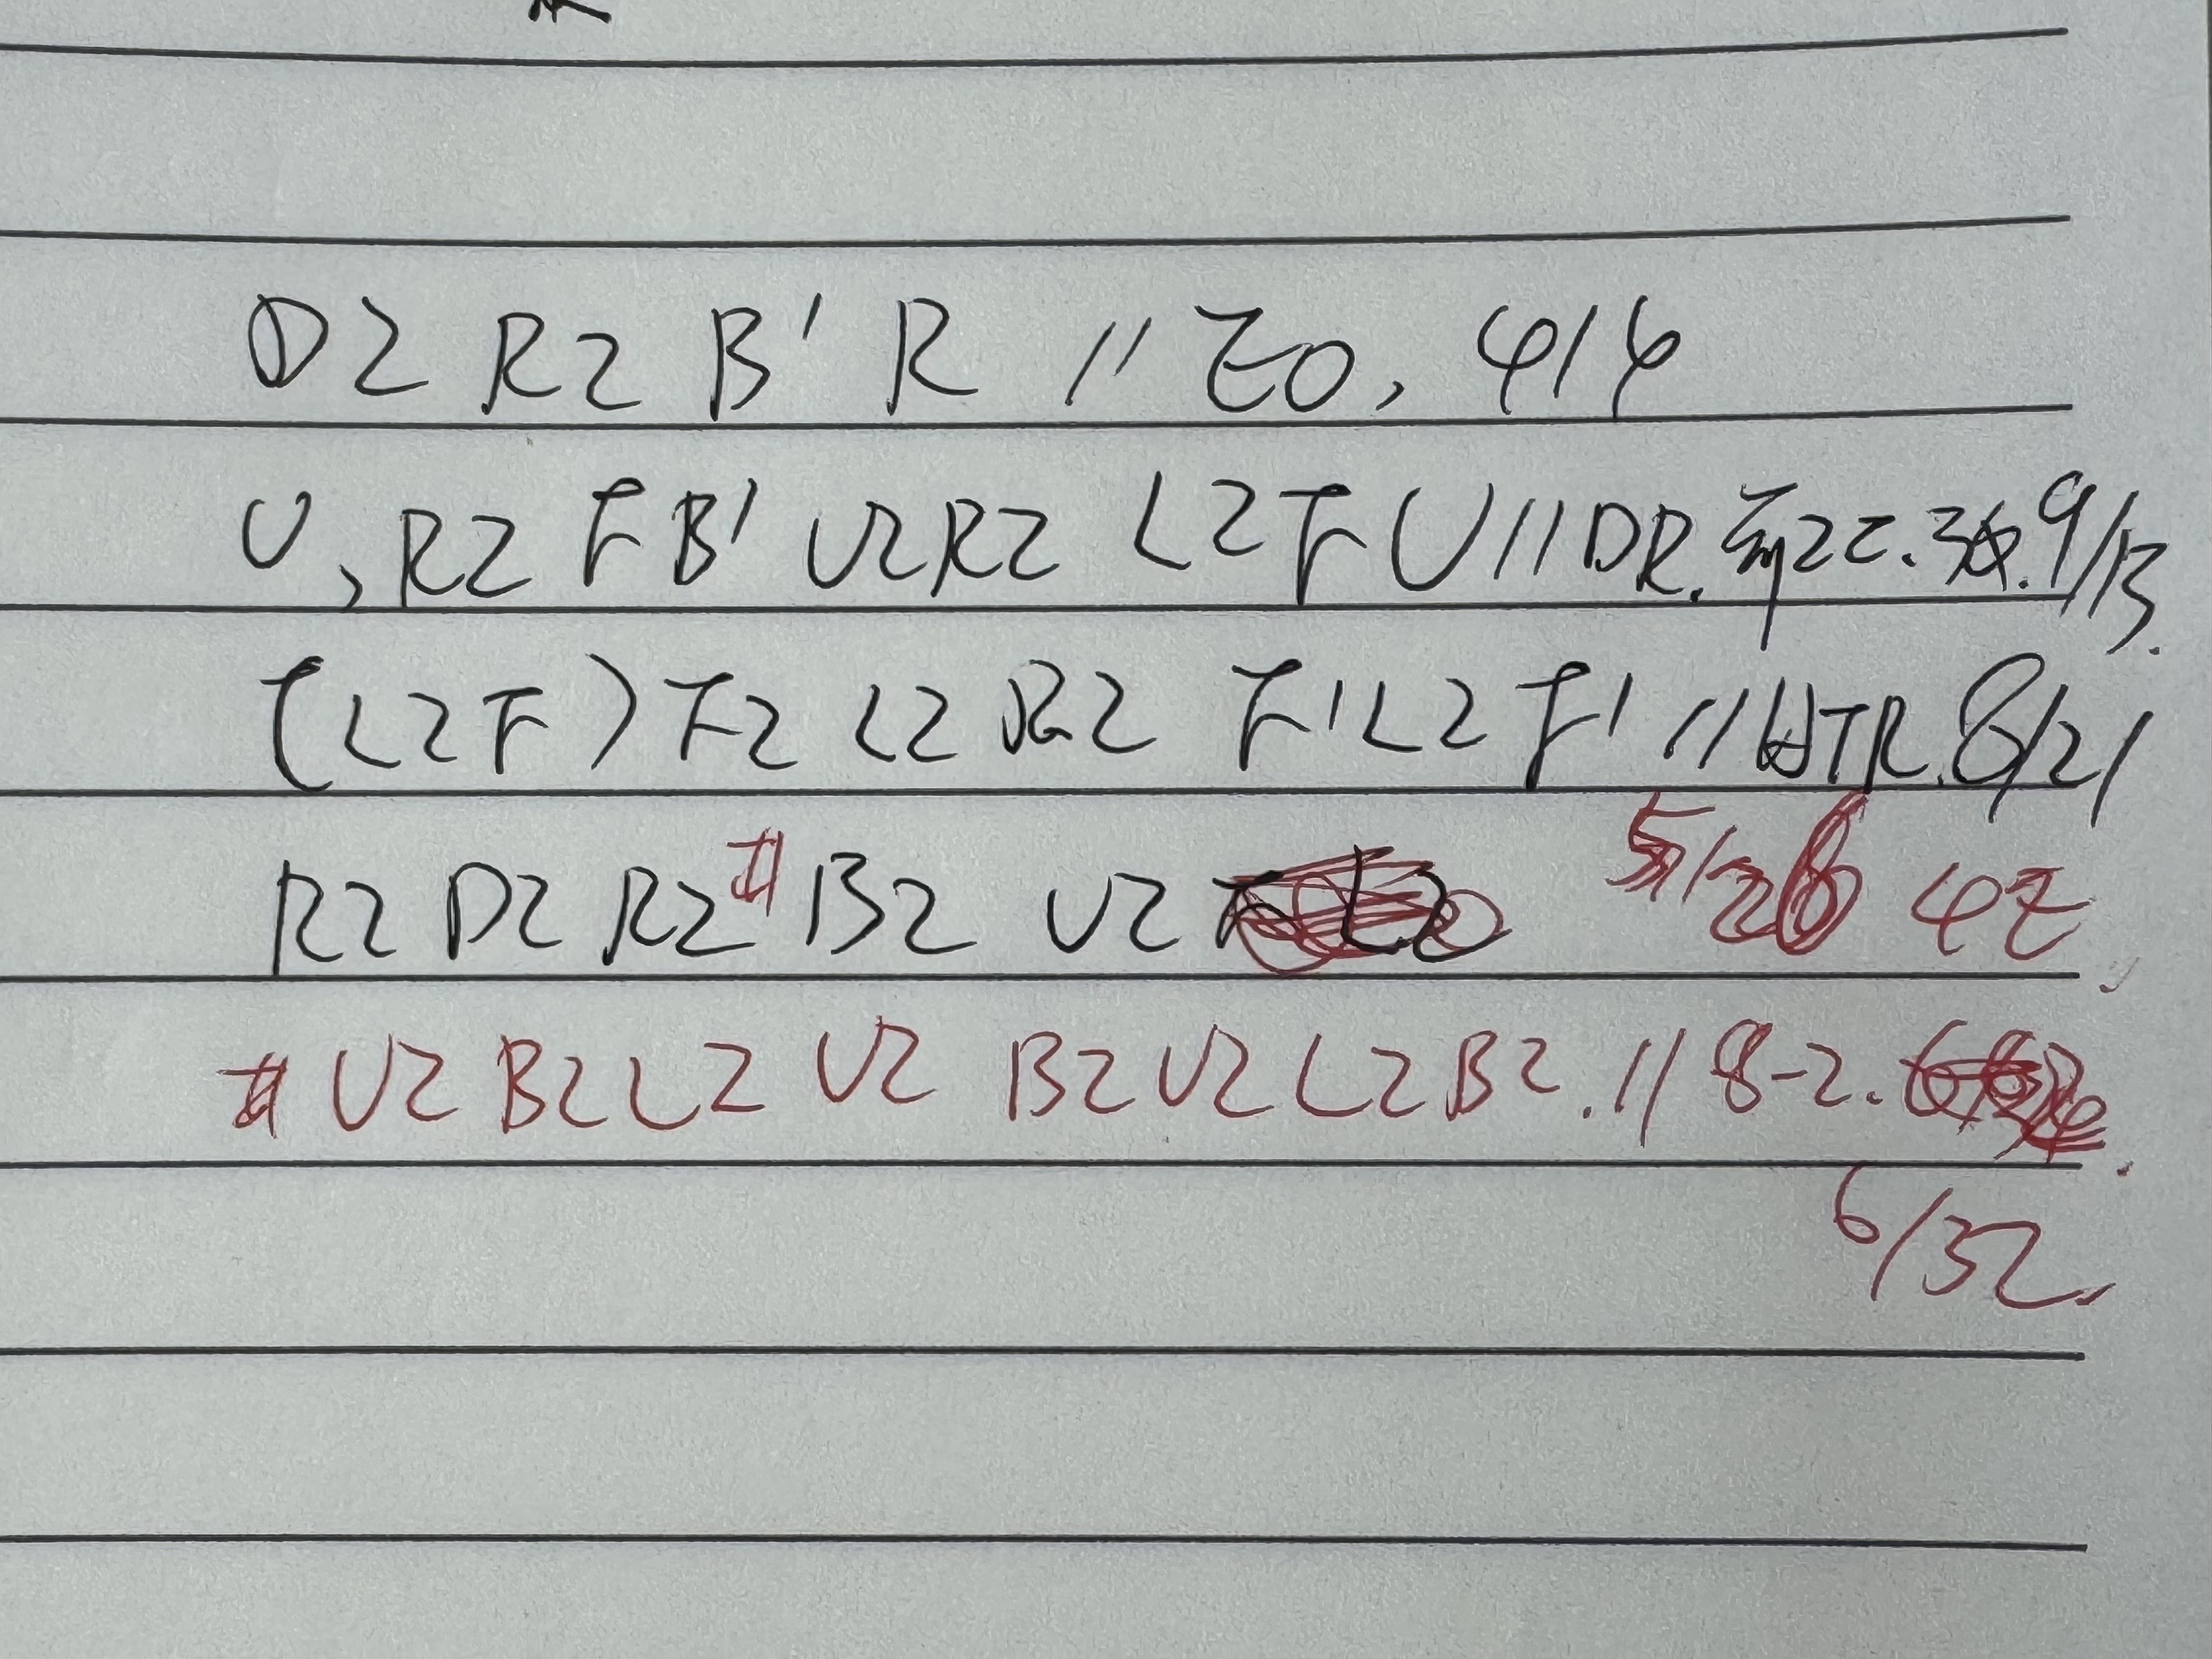 D2 R2 B' R // EO, 4/4
U, R2 F B' U2 R2 L2 F U // DR. 前2C.3改.9/13.
(L2 F) F2 L2 R2 F' L2 F' // HTR.8/21
R2 D2 R2 # B2 U2 5/26 4E
# U2 B2 L2 U2 B2 U2 L2 B2. // 8-2.
6/32.